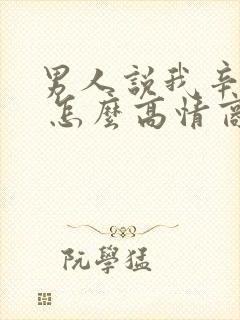 男人說我辛
怎麼高情商
阮學猛